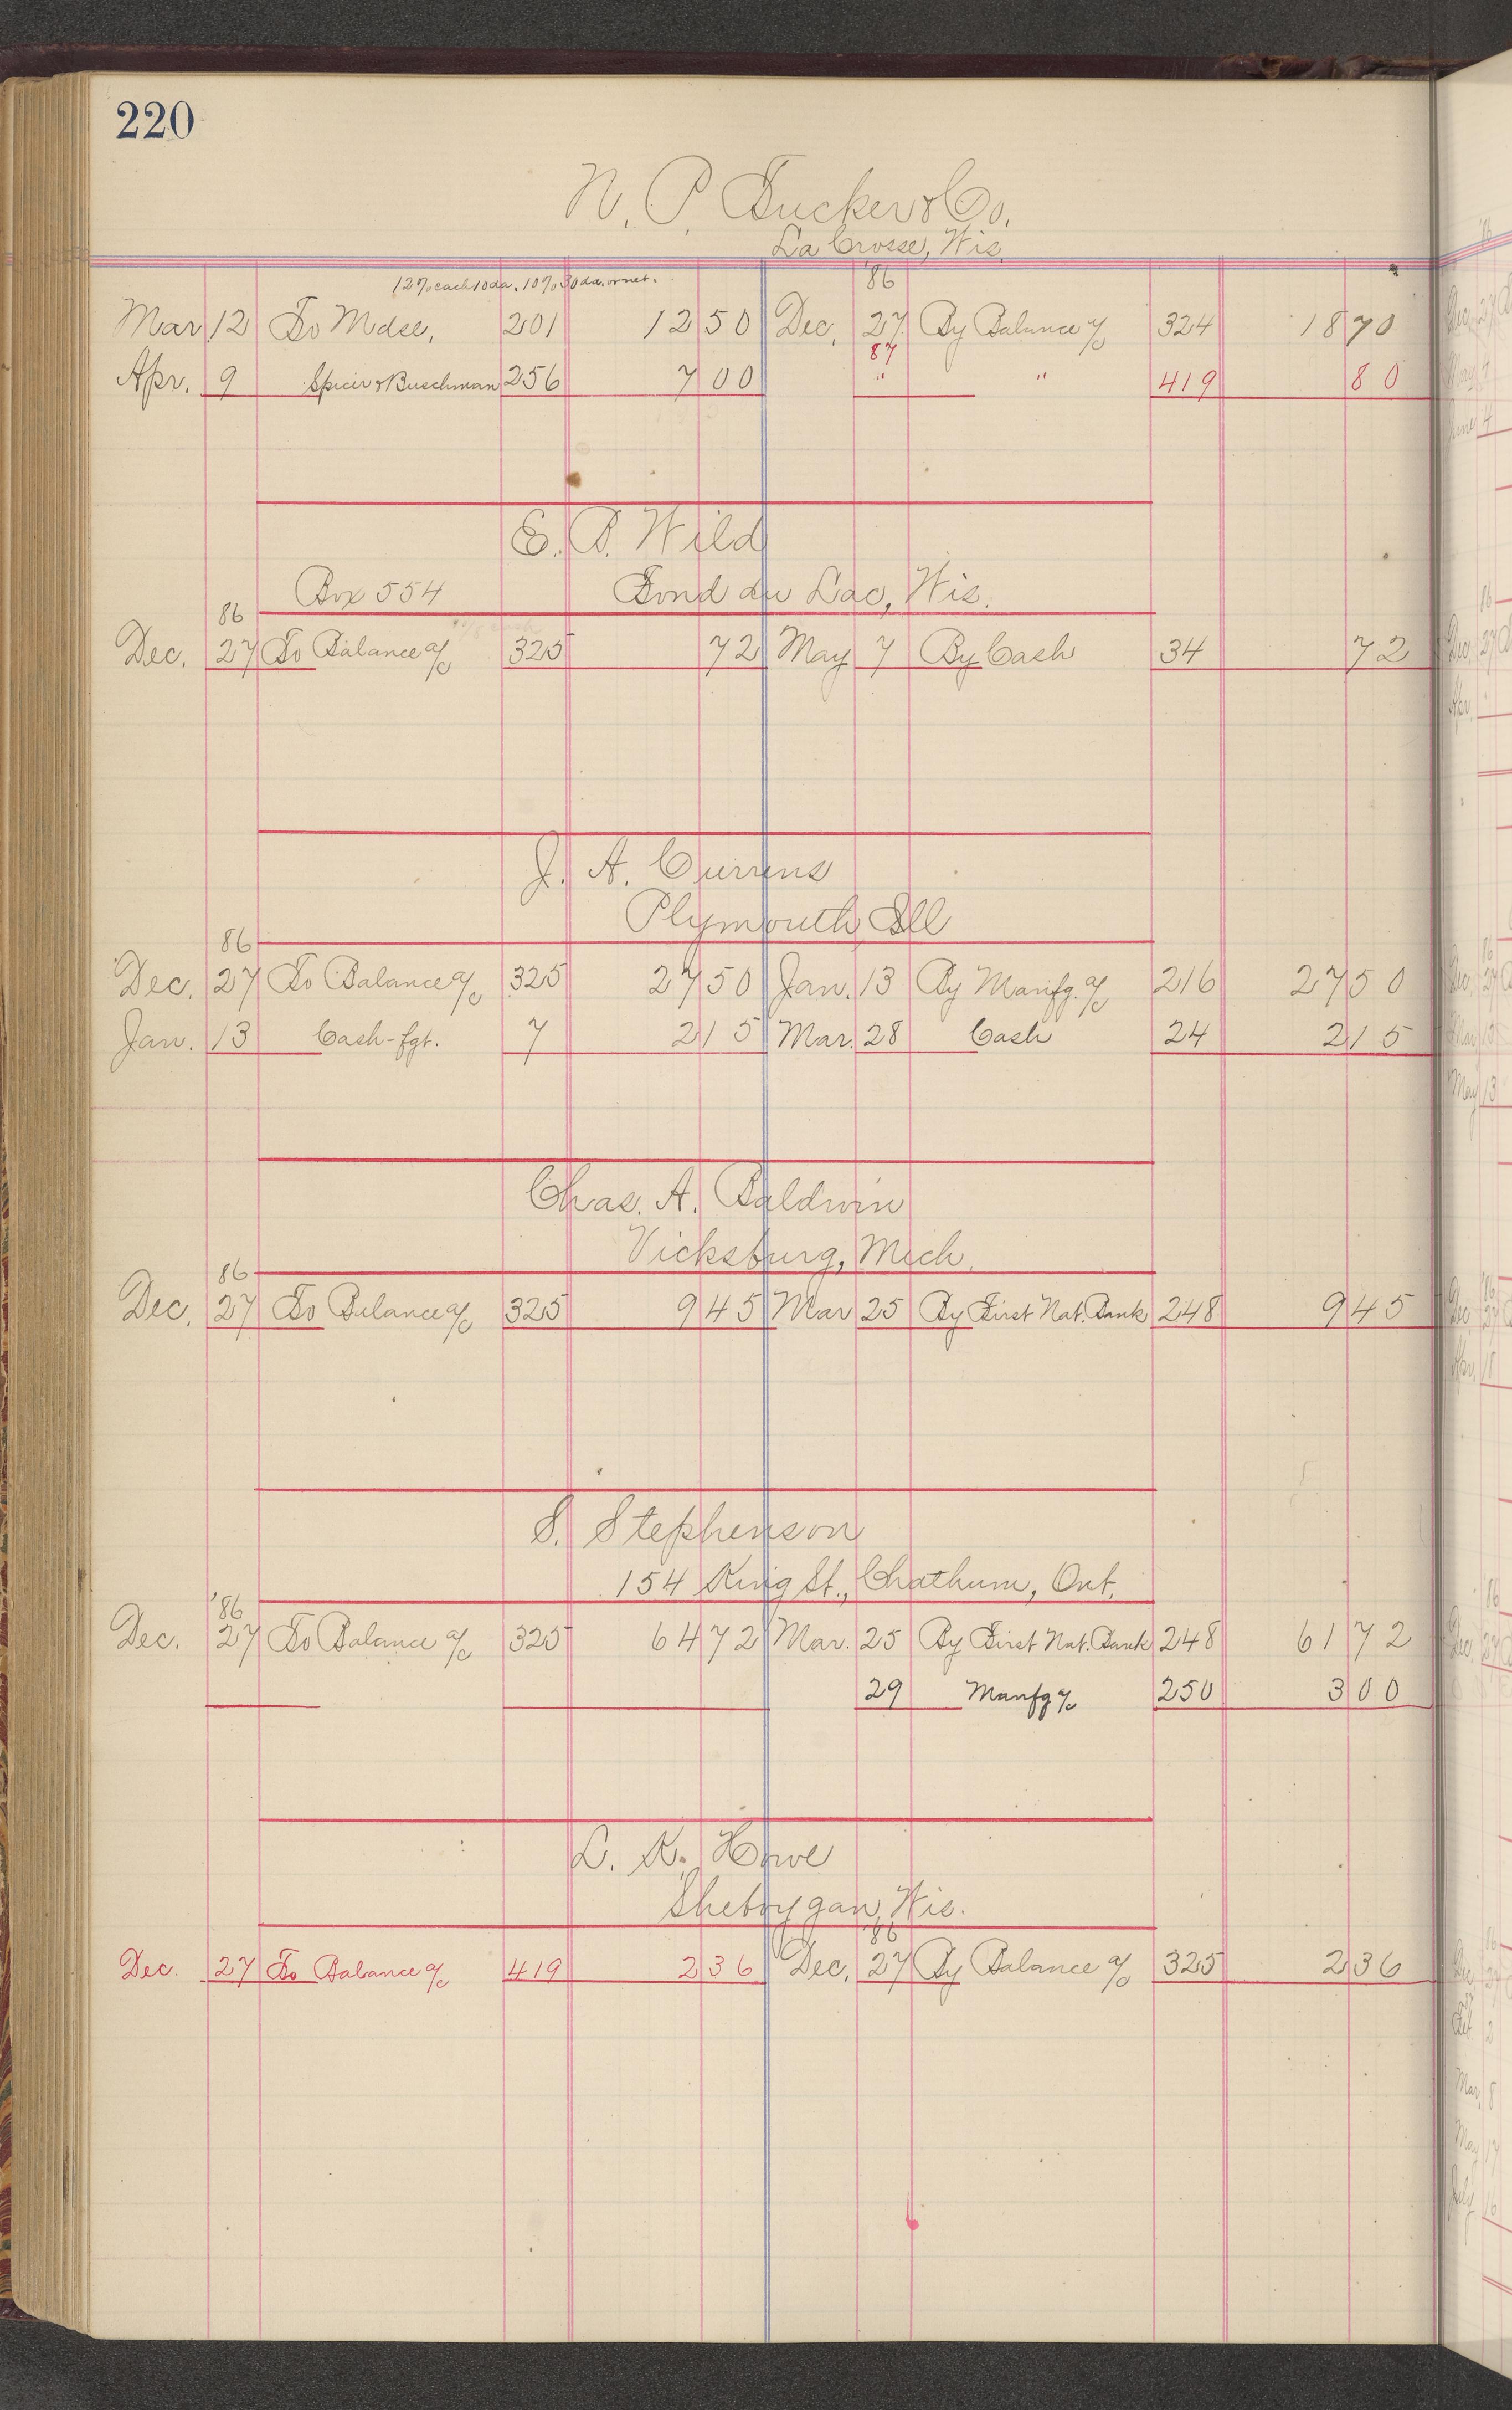 220
N. P. Tucker & Co.
La Crosse, Wis.
12% cash 10 da. 10% 30 da. or net.
'86
Mar 12 To Mdse. 201 12 50 Dec. 27 By Balance a/c 324 18 70
87
Apr. 9 Spicer & Buschman 256 7 00 " " 419 80
E. P. Wild
Box 554 Fond du Lac, Wis.
86
Dec. 27 To Balance a/c 325 72 May 7 By Cash 34 72
J. A. Currens
Plymouth, Ill
86
Dec. 27 To Balance a/c 325 27 50 Jan. 13 By Manfg. a/c 216 27 50
Jan. 13 Cash-fgt. 7 2 15 Mar. 28 Cash 24 2 15
Chas. A. Baldwin
Vicksburg, Mich.
86
Dec. 27 To Balance a/c 325 9 45 Mar 25 By First Nat. Bank 248 9 45
S. Stephenson
154 King St., Chatham, Ont.
'86
Dec. 27 To Balance a/c 325 64 72 Mar. 25 By First Nat. Bank 248 61 72
29 Manfg a/c 250 3 00
L. K. Howe
Sheboygan, Wis.
'86
Dec. 27 To Balance a/c 419 2 36 Dec. 27 By Balance a/c 325 2 36